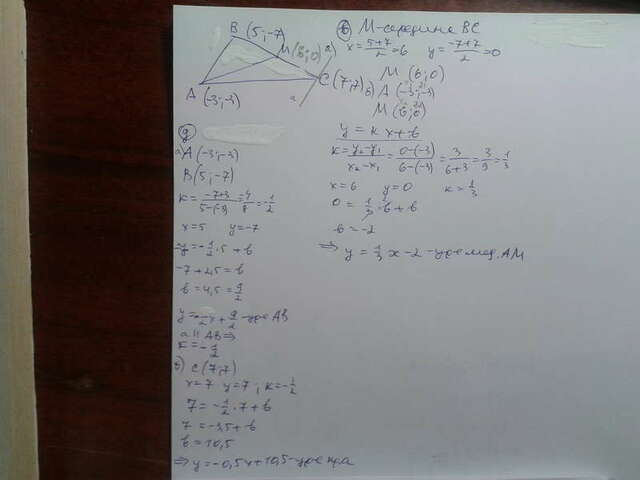 B (5;-7)
M (6;0)
a
C (7;7)
A (-3;-3)
a
в) M-середина BC
x = 5+7/2 = 6 y = -7+7/2 = 0
M (6;0)
в) A (-3;-3)
M (6;0)
y = kx+b
k = y₂-y₁/x₂-x₁ = 0-(-3)/6-(-3) = 3/6+3 = 3/9 = 1/3
x=6 y=0 k=1/3
0 = 1/3·6+b
b = -2
⇒ y = 1/3 x - 2 - ур-е мед. AM
д
а) A (-3;-3)
B (5;-7)
k = -7+3/5-(-3) = -4/8 = -1/2
x=5 y=-7
-7 = -1/2·5 + b
-7 + 2,5 = b
b = 4,5 = 9/2
y = -1/2x + 9/2 - ур-е AB
a ∥ AB ⇒
k = -1/2
б) C (7;7)
x=7 y=7; k=-1/2
7 = -1/2·7+b
7 = -3,5+b
b = 10,5
⇒ y = -0,5x+10,5 - ур-е пр.a